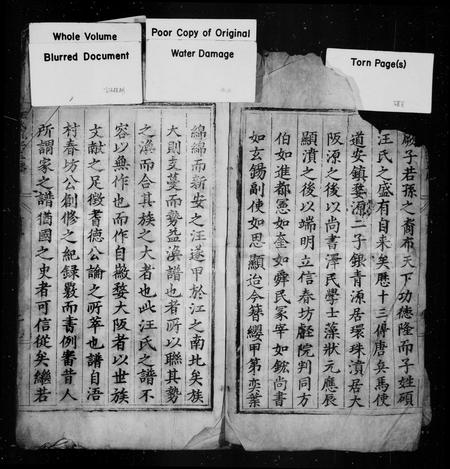 Whole Volume
Blurred Document
Poor Copy of Original
Water Damage
Torn Page(s)
厥子若孫之裔布天下功德隆而子姓碩
汪氏之盛有自来矣歷十三傳唐兵馬使
道安鎮婺源二子銀青源居環珠濆居大
阪源之後以尚書澤民學士藻狀元應辰
顯濆之後以端明立信春坊龍院判同方
伯如進都憲如奎如舜民冡宰如鋐尚書
如玄錫副使如思顯迨今簮纓甲第奕葉
綿綿而新安之汪遂甲於江之南北矣族
大則支蔓而勢益渙譜也者所以聯其勢
之渙而合其族之大者也此汪氏之譜不
容以無作也而作自敝婺大阪者以世族
文獻之足徵耆德公論之所萃也譜自浯
村春坊公創修之紀録覈而書例審昔人
所謂家之譜猶國之史者可信從矣繼若